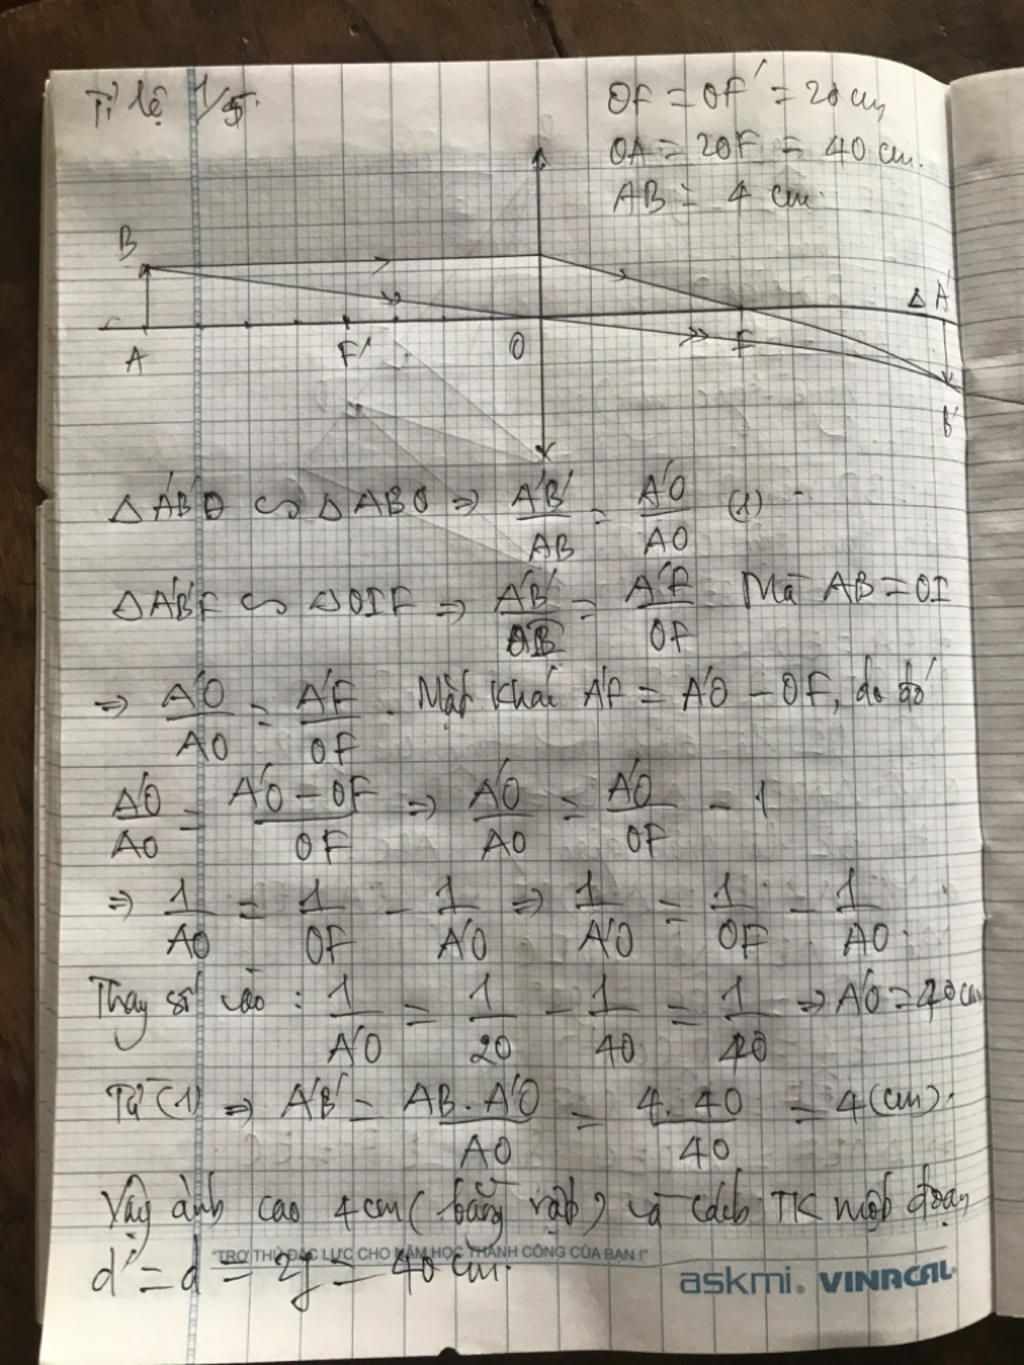 Tỉ lệ 1/5.
OF = OF' = 20 cm
OA = 2OF = 40 cm.
AB = 4 cm.
B
Δ A'
A F' O F
B'
Δ A'B'O ∽ Δ ABO ⇒ A'B'/AB = A'O/AO (1)
Δ A'B'F ∽ Δ OIF ⇒ A'B'/AB = A'F/OF Mà AB = OI
⇒ A'O/AO = A'F/OF. Mặt khác A'F = A'O - OF, do đó
A'O/AO = (A'O - OF)/OF ⇒ A'O/AO = A'O/OF - 1
⇒ 1/AO = 1/OF - 1/A'O ⇒ 1/A'O = 1/OF - 1/AO.
Thay số vào : 1/A'O = 1/20 - 1/40 = 1/40 ⇒ A'O = 40 cm
Từ (1) ⇒ A'B' = AB.A'O/AO = 4.40/40 = 4 (cm).
Vậy ảnh cao 4 cm (bằng vật) và cách TK một đoạn
"TRỢ THỦ ĐẮC LỰC CHO NĂM HỌC THÀNH CÔNG CỦA BẠN !"
d' = d = 2f = 40 cm.
askmi. VINACAL